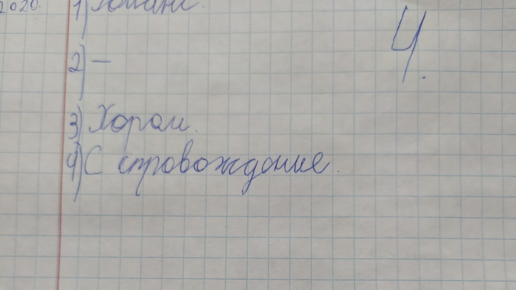 2020.
1)
4.
2) —
3) Хорал.
4) С спровождание.